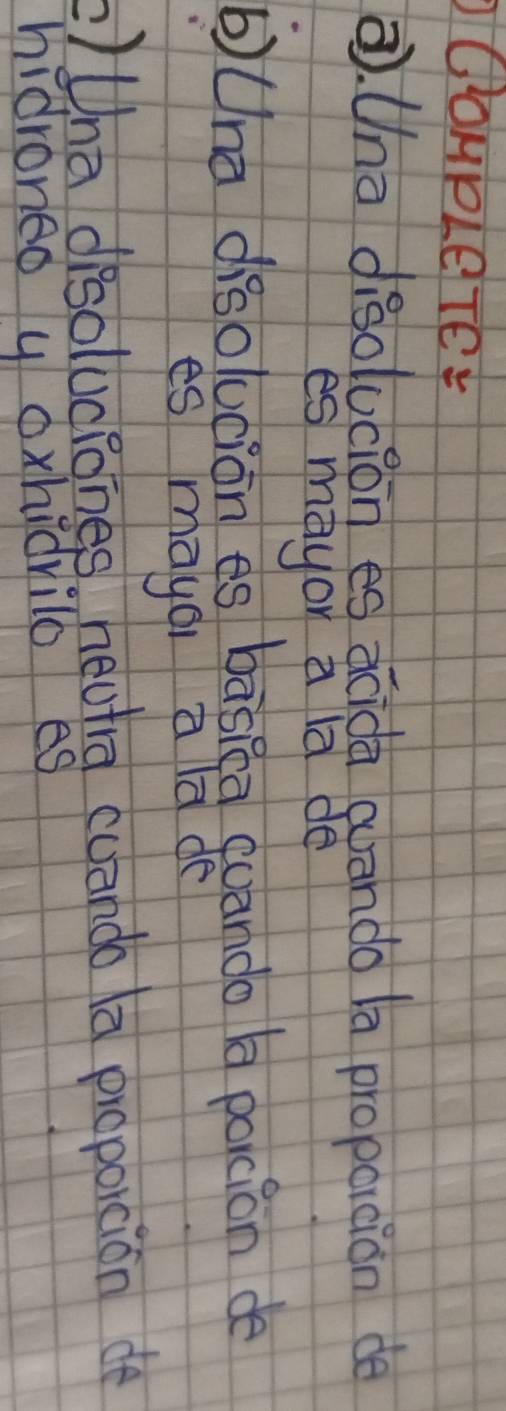 COMPLETE:
a). Una disolución es ácida cuando la proporción de
es mayor a la de
b) Una disolución es básica cuando la porción de
es mayor a la de
c) Una disoluciónes neutra cuando la proporción de
hidroneo y oxhidrilo es